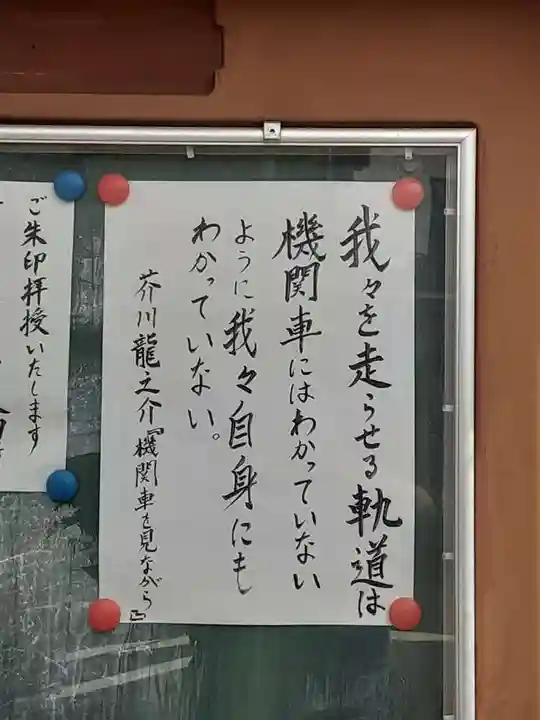 我々を走らせる軌道は
機関車にはわかっていない
ように我々自身にも
わかっていない。
芥川龍之介『機関車を見ながら』
ご朱印拝授いたします